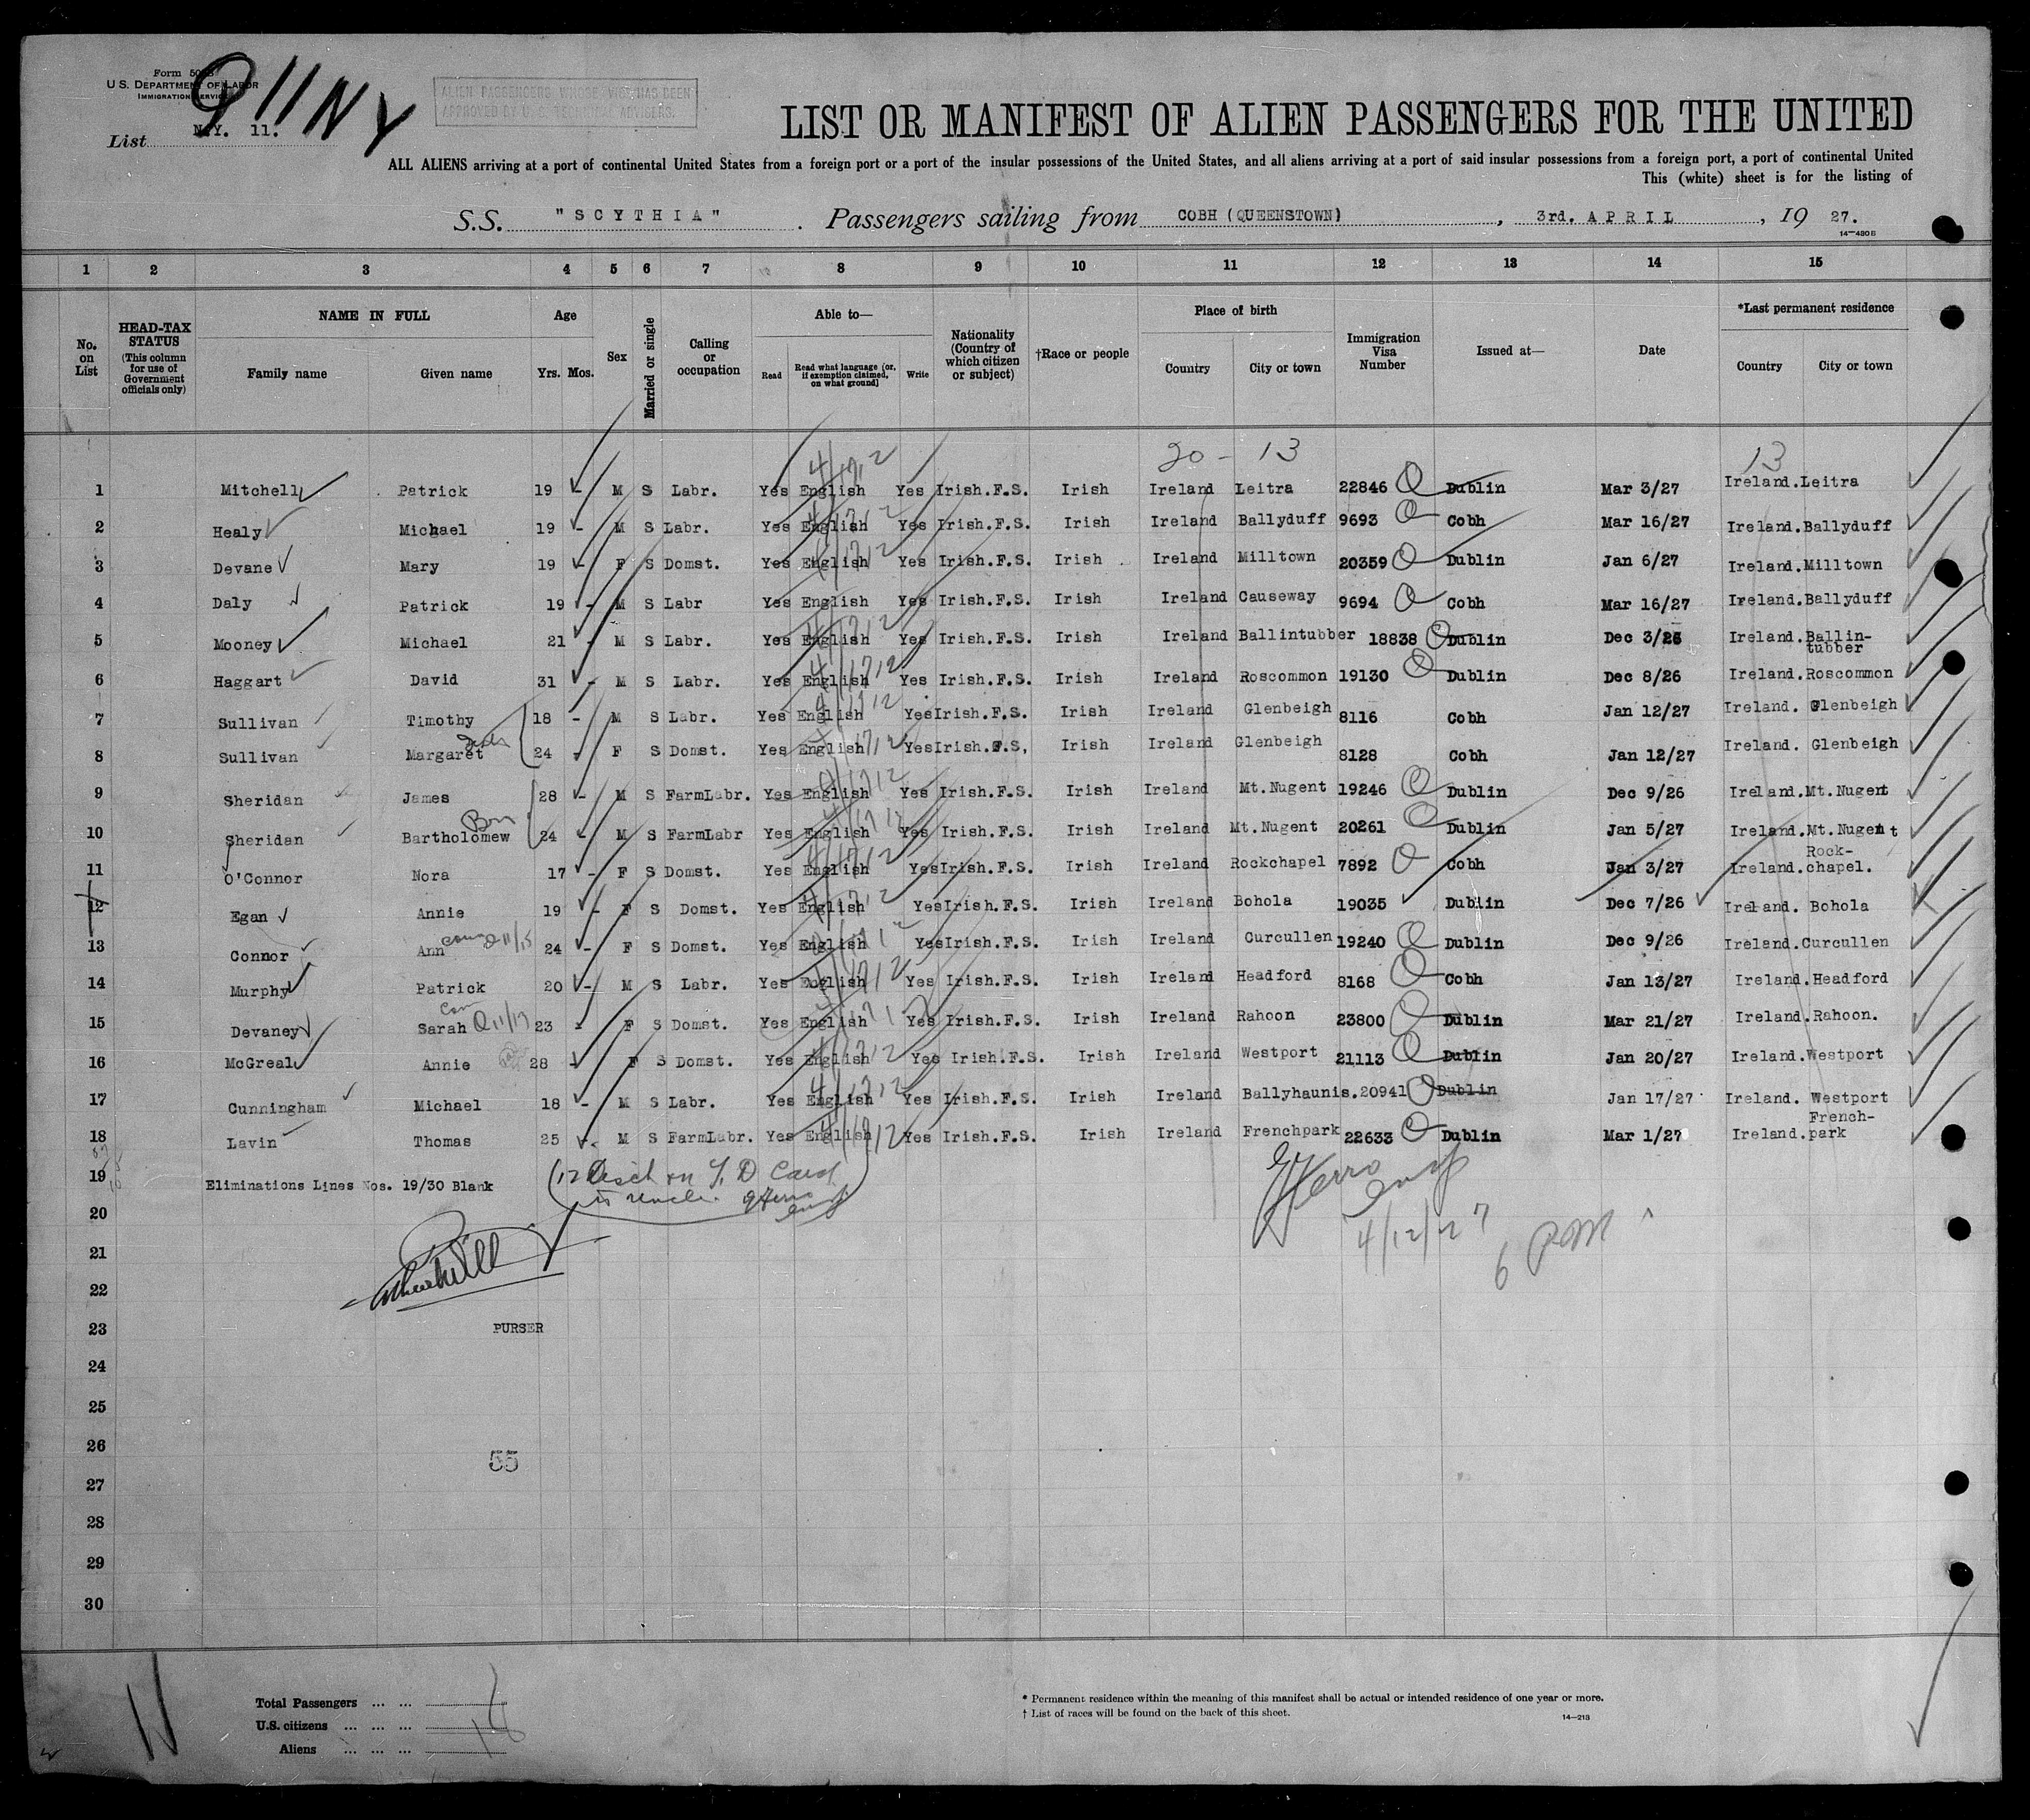 Form 500B
U.S. DEPARTMENT OF LABOR
IMMIGRATION SERVICE
9 11 NY
ALIEN PASSENGERS WHOSE VISA HAS BEEN
APPROVED BY U.S. TECHNICAL ADVISERS.
List N.Y. 11.
LIST OR MANIFEST OF ALIEN PASSENGERS FOR THE UNITED
ALL ALIENS arriving at a port of continental United States from a foreign port or a port of the insular possessions of the United States, and all aliens arriving at a port of said insular possessions from a foreign port, a port of continental United
This (white) sheet is for the listing of
S.S. "SCYTHIA" . Passengers sailing from COBH (QUEENSTOWN) , 3rd. APRIL , 19 27.
14—480B
1 2 3 4 5 6 7 8 9 10 11 12 13 14 15
No. on List
HEAD-TAX STATUS (This column for use of Government officials only)
NAME IN FULL
Family name Given name
Age
Yrs. Mos.
Sex
Married or single
Calling or occupation
Able to—
Read Read what language [or, if exemption claimed, on what ground] Write
Nationality (Country of which citizen or subject)
†Race or people
Place of birth
Country City or town
Immigration Visa Number
Issued at—
Date
*Last permanent residence
Country City or town
20 - 13 13
1 Mitchell Patrick 19 - M S Labr. Yes English Yes Irish.F.S. Irish Ireland Leitra 22846 Dublin Mar 3/27 Ireland. Leitra
2 Healy Michael 19 - M S Labr. Yes English Yes Irish.F.S. Irish Ireland Ballyduff 9693 Cobh Mar 16/27 Ireland. Ballyduff
3 Devane Mary 19 - F S Domst. Yes English Yes Irish.F.S. Irish Ireland Milltown 20359 Dublin Jan 6/27 Ireland. Milltown
4 Daly Patrick 19 - M S Labr Yes English Yes Irish.F.S. Irish Ireland Causeway 9694 Cobh Mar 16/27 Ireland. Ballyduff
5 Mooney Michael 21 - M S Labr. Yes English Yes Irish.F.S. Irish Ireland Ballintubber 18838 Dublin Dec 3/26 Ireland. Ballin-tubber
6 Haggart David 31 - M S Labr. Yes English Yes Irish.F.S. Irish Ireland Roscommon 19130 Dublin Dec 8/26 Ireland. Roscommon
7 Sullivan Timothy 18 - M S Labr. Yes English Yes Irish.F.S. Irish Ireland Glenbeigh 8116 Cobh Jan 12/27 Ireland. Glenbeigh
8 Sullivan Margaret 24 - F S Domst. Yes English Yes Irish.F.S, Irish Ireland Glenbeigh 8128 Cobh Jan 12/27 Ireland. Glenbeigh
9 Sheridan James 28 - M S FarmLabr. Yes English Yes Irish.F.S. Irish Ireland Mt.Nugent 19246 Dublin Dec 9/26 Ireland. Mt.Nugent
Bro
10 Sheridan Bartholomew 24 - M S FarmLabr Yes English Yes Irish.F.S. Irish Ireland Mt.Nugent 20261 Dublin Jan 5/27 Ireland. Mt.Nugent
11 O'Connor Nora 17 - F S Domst. Yes English Yes Irish.F.S. Irish Ireland Rockchapel 7892 Cobh Jan 3/27 Ireland. Rock-chapel.
12 Egan Annie 19 - F S Domst. Yes English Yes Irish.F.S. Irish Ireland Bohola 19035 Dublin Dec 7/26 Ireland. Bohola
13 Connor Ann 24 - F S Domst. Yes English Yes Irish.F.S. Irish Ireland Curcullen 19240 Dublin Dec 9/26 Ireland. Curcullen
14 Murphy Patrick 20 - M S Labr. Yes English Yes Irish.F.S. Irish Ireland Headford 8168 Cobh Jan 13/27 Ireland. Headford
15 Devaney Sarah 23 - F S Domst. Yes English Yes Irish.F.S. Irish Ireland Rahoon 23800 Dublin Mar 21/27 Ireland. Rahoon.
16 McGreal Annie 28 - F S Domst. Yes English Yes Irish.F.S. Irish Ireland Westport 21113 Dublin Jan 20/27 Ireland. Westport
17 Cunningham Michael 18 - M S Labr. Yes English Yes Irish.F.S. Irish Ireland Ballyhaunis. 20941 Dublin Jan 17/27 Ireland. Westport
18 Lavin Thomas 25 - M S FarmLabr. Yes English Yes Irish.F.S. Irish Ireland Frenchpark 22633 Dublin Mar 1/27 Ireland. French-park
19 Eliminations Lines Nos. 19/30 Blank
to uncle.
20
4/12/27
6 PM
21
22
23 PURSER
24
25
26
55
27
28
29
30
Total Passengers ... ...
U.S. citizens ... ... ...
Aliens ... ... ...
18
* Permanent residence within the meaning of this manifest shall be actual or intended residence of one year or more.
† List of races will be found on the back of this sheet.
14—213